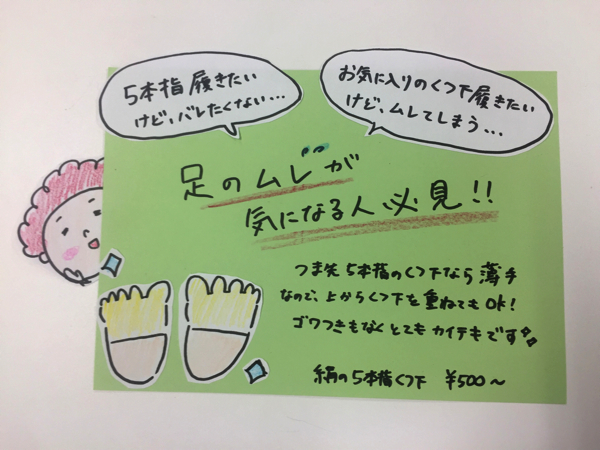 5本指履きたい
けど、バレたくない…
お気に入りのくつ下履きたい
けど、ムレてしまう…
足のムレが
気になる人必見!!
つま先5本指のくつ下なら薄手
なので、上からくつ下を重ねてもOK!
ゴワつきもなくとてもカイテキです
絹の5本指くつ下 ¥500~